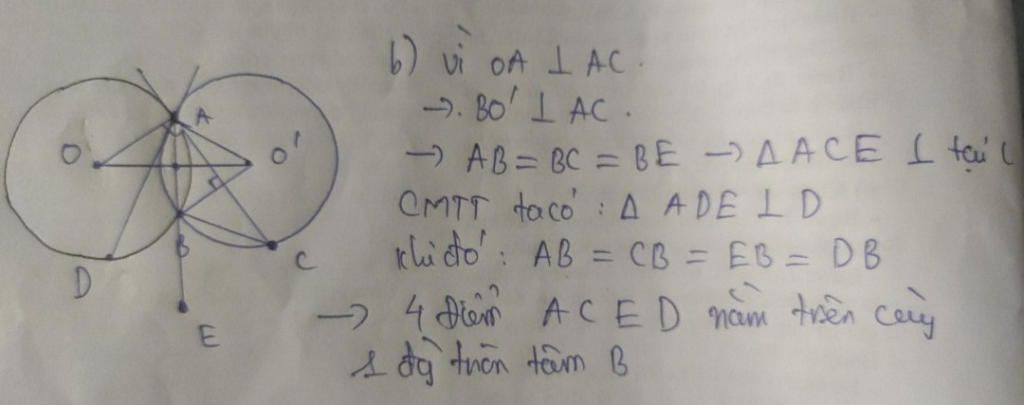 b) vì OA ⊥ AC.
→. BO' ⊥ AC.
→ AB = BC = BE → Δ ACE ⊥ tại C
CMTT ta có : Δ ADE ⊥ D
khi đó : AB = CB = EB = DB
→ 4 điểm A C E D nằm trên cùng
1 đg tròn tâm B
A
O
O'
B
D
C
E